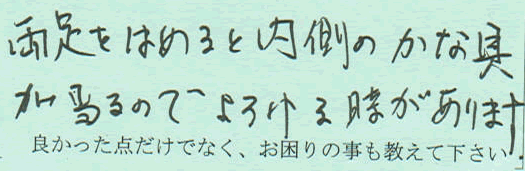 両足をはめると内側のかな具
が当るのでよろける時があります
良かった点だけでなく、お困りの事も教えて下さい。